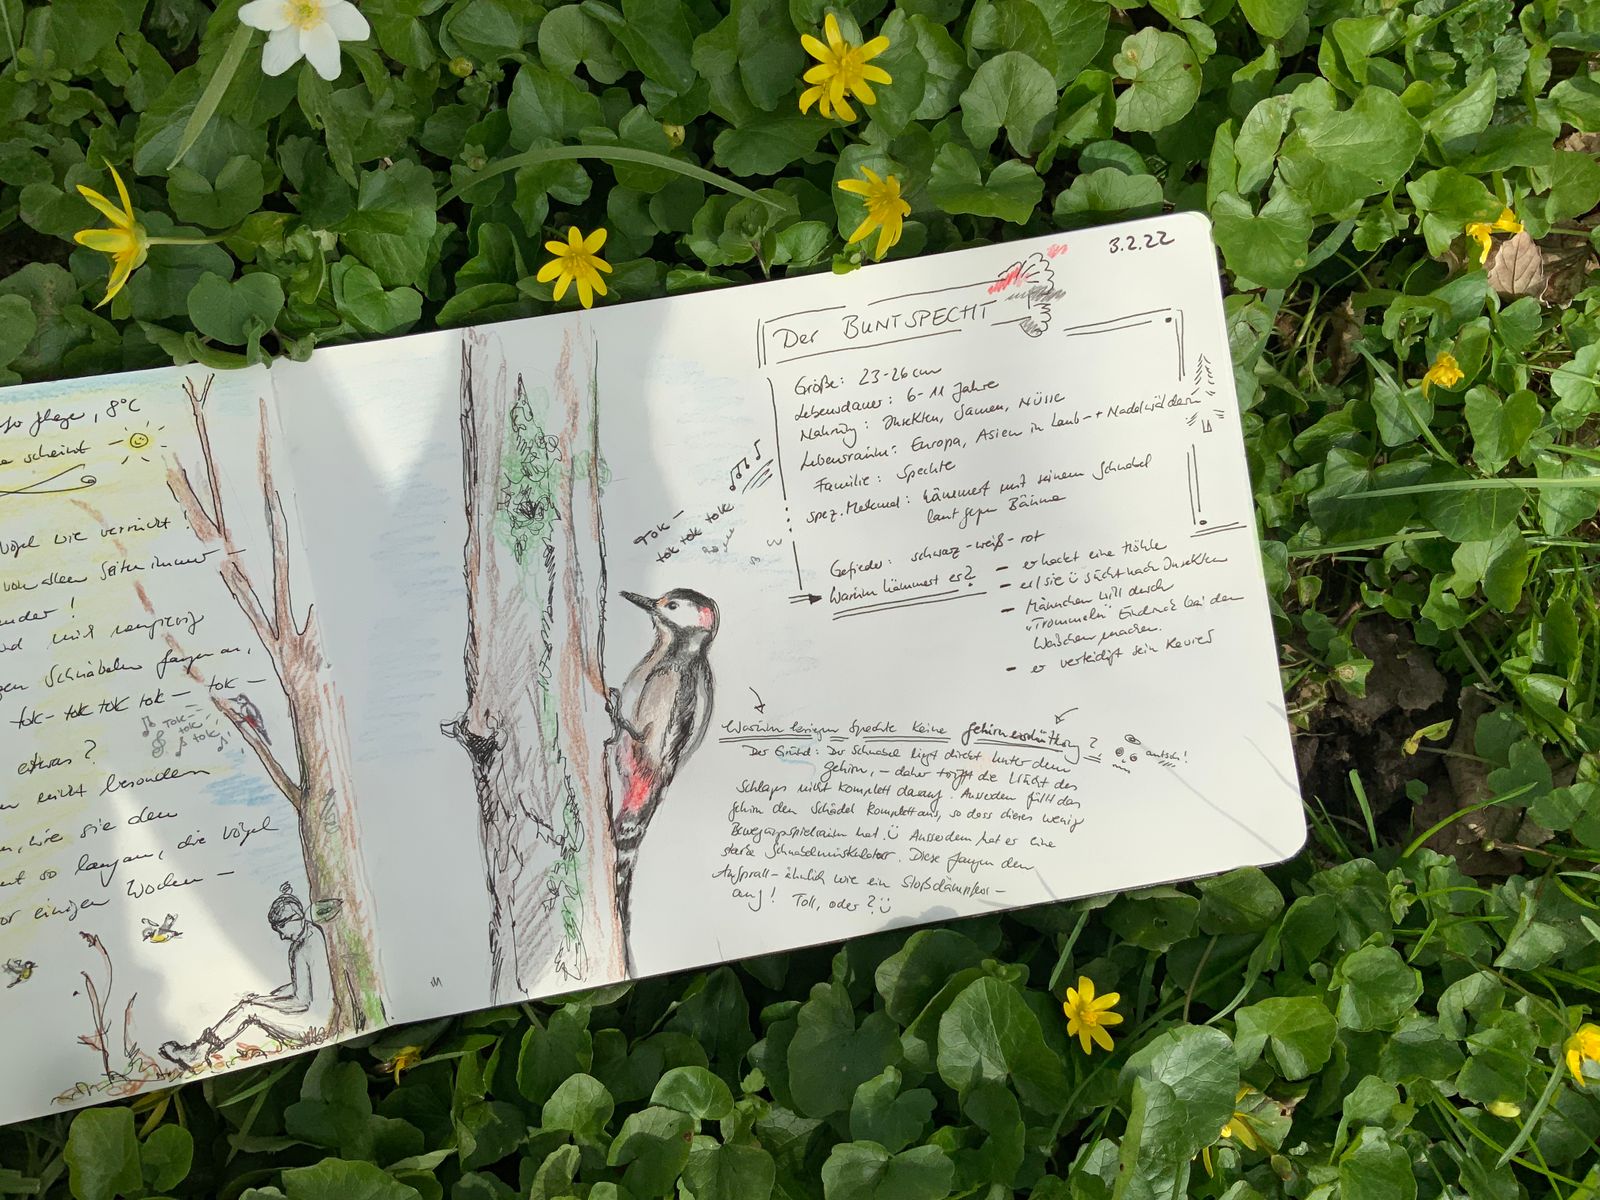 8°C
scheint
Vögel wie verrückt!
von allen Seiten immer
und neugierig
Schnäbeln fangen an,
tok - tok tok tok - tok -
etwas?
nicht besonders
wie sie den
so langsam, die Vögel
vor einigen Wochen -
tok -
tok
tok
Tok -
tok tok tok
3.2.22
Der BUNTSPECHT
Größe: 23-26 cm
Lebensdauer: 6-11 Jahre
Nahrung: Insekten, Samen, Nüsse
Lebensraum: Europa, Asien in Laub- + Nadelwäldern
Familie: Spechte
spez. Merkmal: hämmert mit seinem Schnabel
laut gegen Bäume
Gefieder: schwarz-weiß-rot
Warum hämmert er?
- er hackt eine Höhle
- er/sie sucht nach Insekten
- Männchen will durch
"Trommeln" Eindruck bei den
Weibchen machen.
- er verteidigt sein Revier
Warum kriegen Spechte keine Gehirnerschütterung?
autsch!
Der Grund: Der Schnabel liegt direkt unter dem
Gehirn, - daher trifft die Wucht des
Schlages nicht komplett darauf. Ausserdem füllt das
Gehirn den Schädel komplett aus, so dass dieses wenig
Bewegungsspielraum hat. Ausserdem hat er eine
starke Schnabelmuskulatur. Diese fangen den
Aufprall - ähnlich wie ein Stoßdämpfer -
auf! Toll, oder?